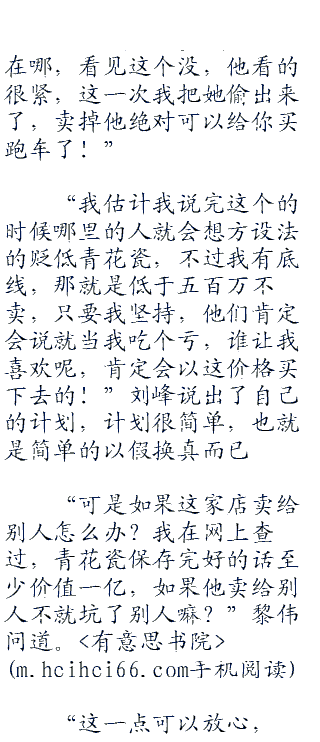 在哪，看见这个没，他看的
很紧，这一次我把她偷出来
了，卖掉他绝对可以给你买
跑车了！”
“我估计我说完这个的
时候哪里的人就会想方设法
的贬低青花瓷，不过我有底
线，那就是低于五百万不
卖，只要我坚持，他们肯定
会说就当我吃个亏，谁让我
喜欢呢，肯定会以这价格买
下去的！”刘峰说出了自己
的计划，计划很简单，也就
是简单的以假换真而已
“可是如果这家店卖给
别人怎么办？我在网上查
过，青花瓷保存完好的话至
少价值一亿，如果他卖给别
人不就坑了别人嘛？”黎伟
问道。<有意思书院>
(m.hcihci66.com手机阅读)
“这一点可以放心，